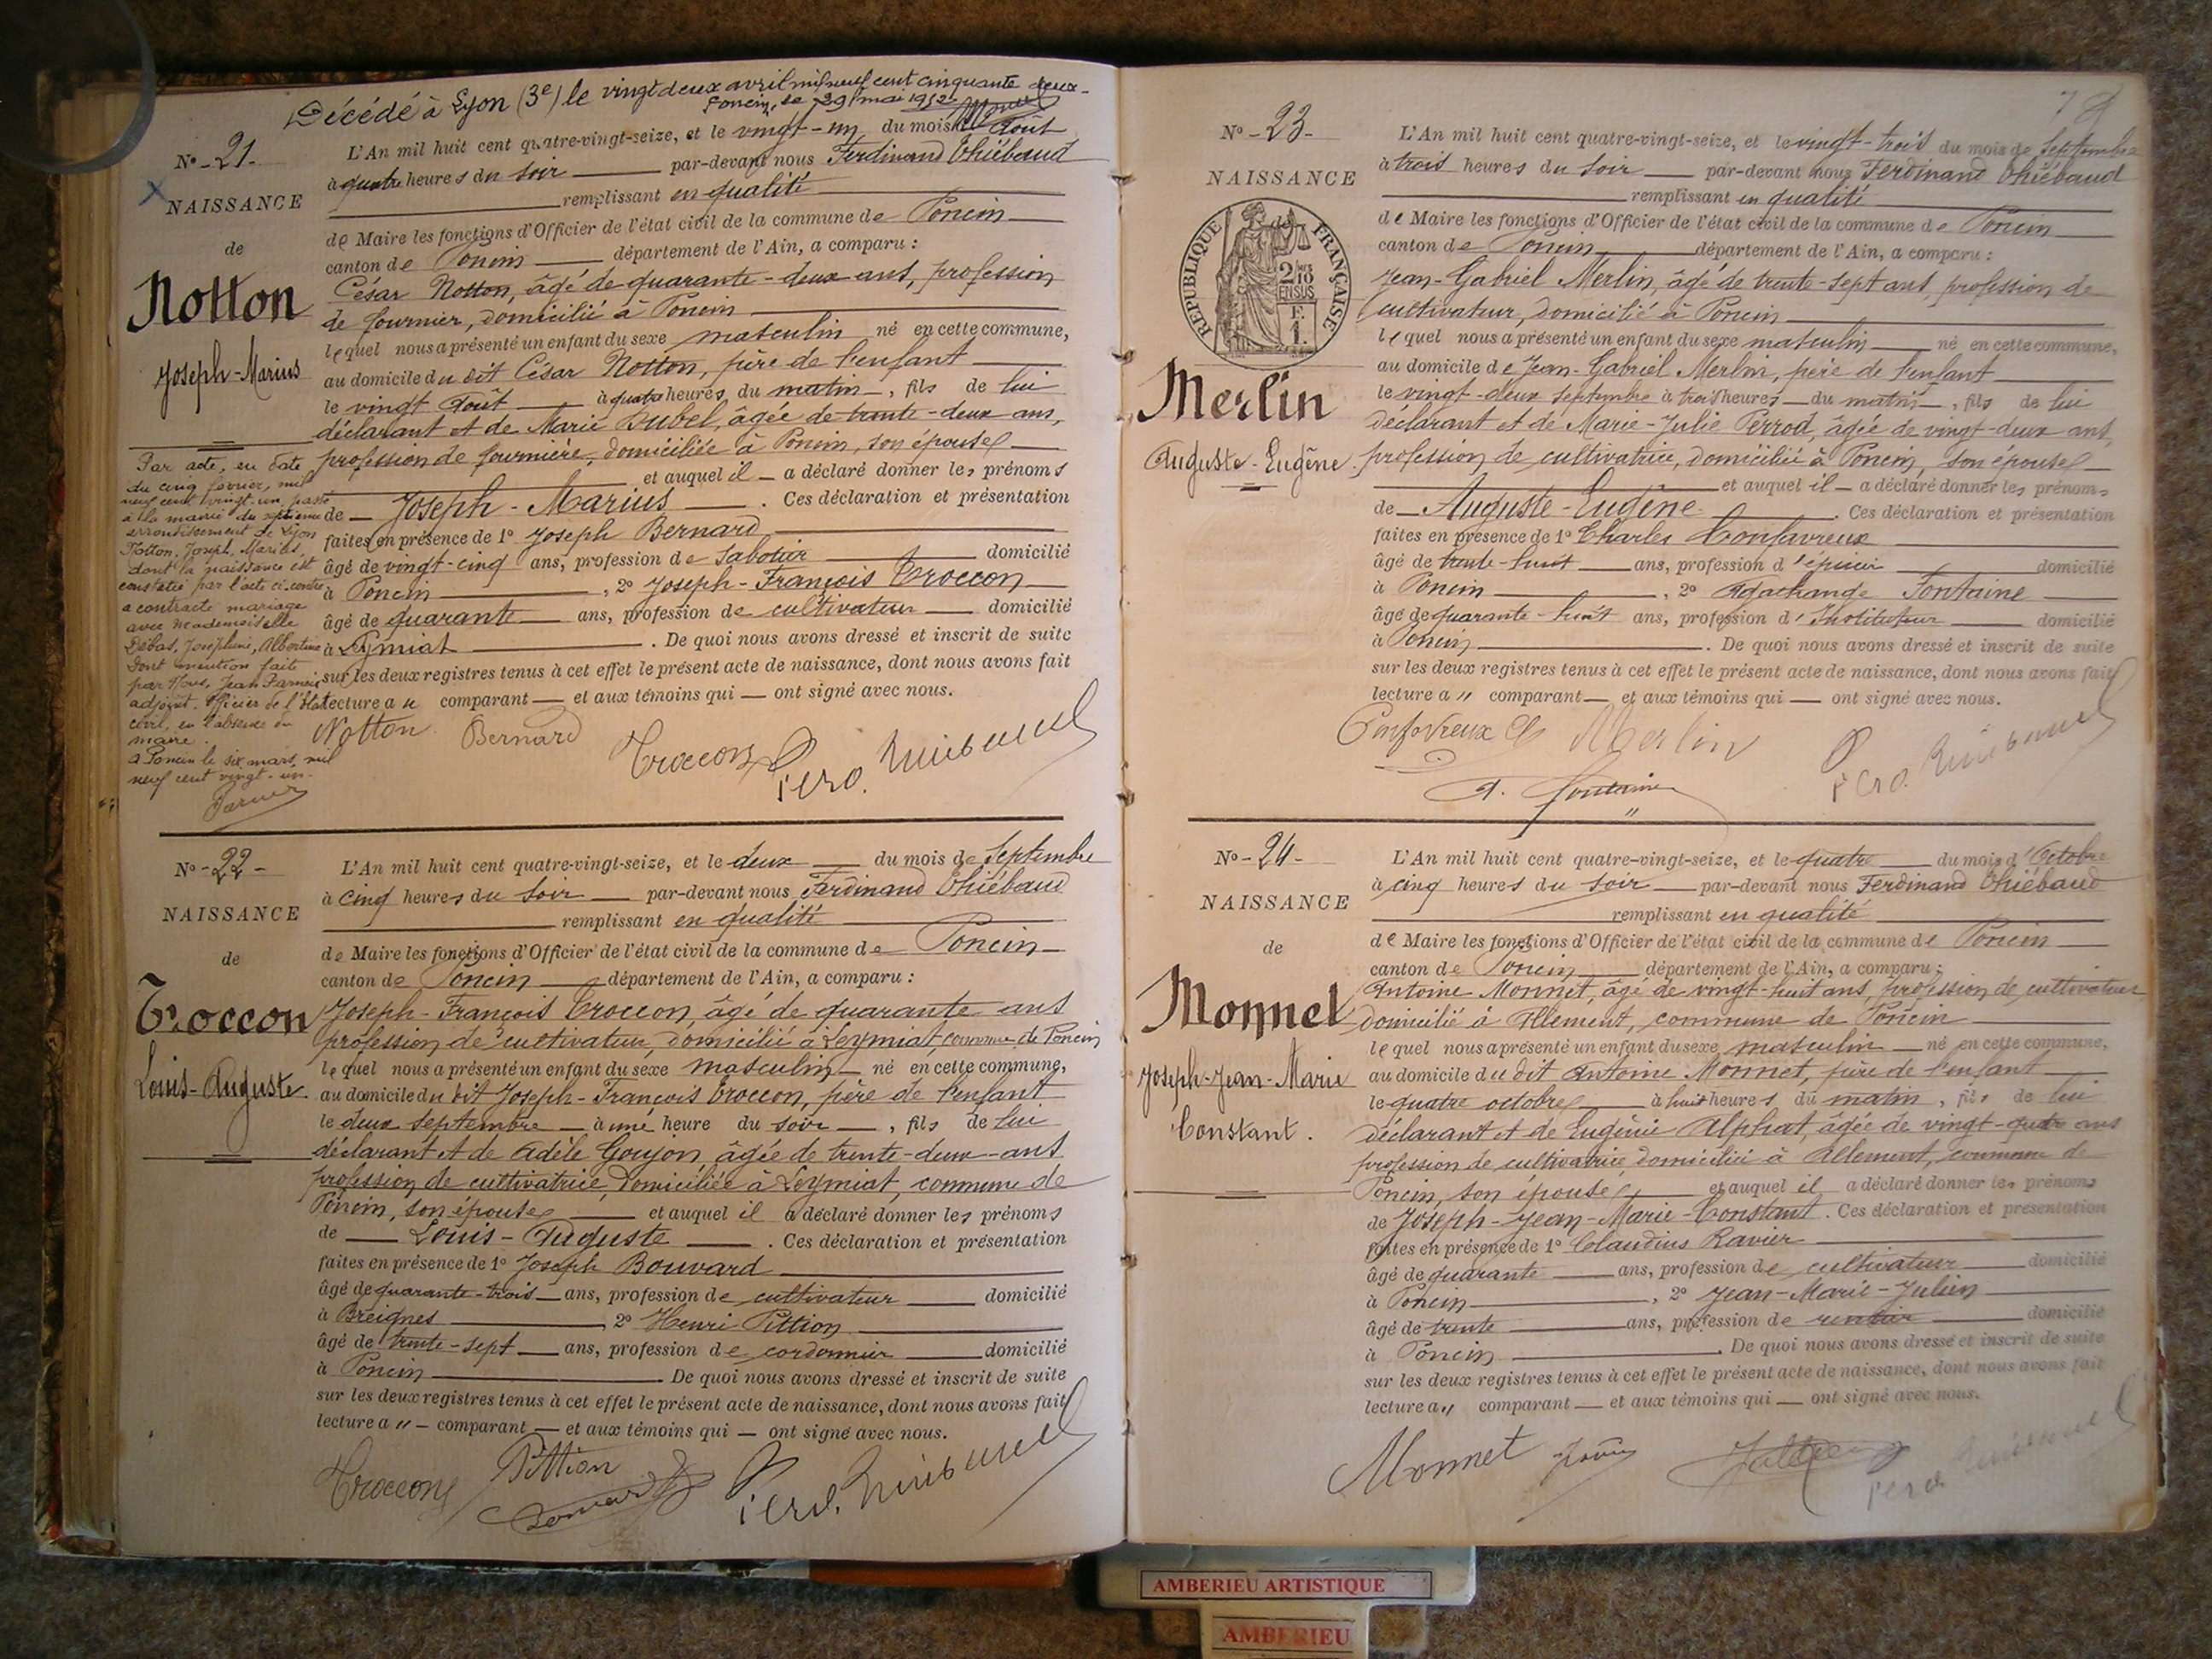 Décédé à Lyon (3e) le vingt deux avril mil neuf cent cinquante deux-
Poncin, le 29 mai 1952
No - 21 -
NAISSANCE
de
Notton
Joseph-Marius
L'An mil huit cent quatre-vingt-seize, et le vingt-un du mois d'Août
à quatre heures du soir par-devant nous Ferdinand Thiébaud
remplissant en qualité
de Maire les fonctions d'Officier de l'état civil de la commune de Poncin
canton de Poncin département de l'Ain, a comparu :
César Notton, âgé de quarante-deux ans, profession
de fournier, domicilié à Poncin
lequel nous a présenté un enfant du sexe masculin né en cette commune,
au domicile du dit César Notton, père de l'enfant
le vingt Août à quatre heures du matin, fils de lui
déclarant et de Marie Dubel, âgée de trente-deux ans,
profession de fournière, domiciliée à Poncin, son épouse
et auquel il a déclaré donner les prénoms
de Joseph-Marius. Ces déclaration et présentation
faites en présence de 1° Joseph Bernard
âgé de vingt-cinq ans, profession de Sabotier domicilié
à Poncin, 2° Joseph-François Troccon
âgé de quarante ans, profession de cultivateur domicilié
à Leymiat. De quoi nous avons dressé et inscrit de suite
sur les deux registres tenus à cet effet le présent acte de naissance, dont nous avons fait
lecture au comparant et aux témoins qui ont signé avec nous.
Notton Bernard Troccon Ferd. Thiébaud
Par acte, en date
du cinq février, mil
neuf cent vingt-un, passé
à la mairie du septième
arrondissement de Lyon
Notton, Joseph, Marius,
dont la naissance est
constatée par l'acte ci-contre
a contracté mariage
avec Mademoiselle
Débas, Joséphine, Albertine
Dont mention faite
par Nous, Jean
adjoint. Officier de l'État
civil, en l'absence du
maire.
à Poncin le six mars, mil
neuf cent vingt-un.
No - 22 -
NAISSANCE
de
Troccon
Louis-Auguste
L'An mil huit cent quatre-vingt-seize, et le deux du mois de Septembre
à cinq heures du soir par-devant nous Ferdinand Thiébaud
remplissant en qualité
de Maire les fonctions d'Officier de l'état civil de la commune de Poncin
canton de Poncin département de l'Ain, a comparu :
Joseph-François Troccon, âgé de quarante ans
profession de cultivateur, domicilié à Leymiat, commune de Poncin
lequel nous a présenté un enfant du sexe masculin né en cette commune,
au domicile du dit Joseph-François Troccon, père de l'enfant
le deux septembre à une heure du soir, fils de lui
déclarant et de Adèle Goujon, âgée de trente-deux-ans
profession de cultivatrice, domiciliée à Leymiat, commune de
Poncin, son épouse et auquel il a déclaré donner les prénoms
de Louis-Auguste. Ces déclaration et présentation
faites en présence de 1° Joseph Bouvard
âgé de quarante-trois ans, profession de cultivateur domicilié
à Breignes, 2° Henri Pittion
âgé de trente-sept ans, profession de cordonnier domicilié
à Poncin. De quoi nous avons dressé et inscrit de suite
sur les deux registres tenus à cet effet le présent acte de naissance, dont nous avons fait
lecture a " comparant et aux témoins qui ont signé avec nous.
Troccon Pittion Bouvard Ferd. Thiébaud
No - 23 -
NAISSANCE
de
RÉPUBLIQUE FRANÇAISE
2/10 EN SUS
F. 1.
Merlin
Auguste-Eugène
L'An mil huit cent quatre-vingt-seize, et le vingt-trois du mois de Septembre
à trois heures du soir par-devant nous Ferdinand Thiébaud
remplissant en qualité
de Maire les fonctions d'Officier de l'état civil de la commune de Poncin
canton de Poncin département de l'Ain, a comparu :
Jean-Gabriel Merlin, âgé de trente-sept ans, profession de
cultivateur, domicilié à Poncin
lequel nous a présenté un enfant du sexe masculin né en cette commune,
au domicile de Jean-Gabriel Merlin, père de l'enfant
le vingt-deux septembre à trois heures du matin, fils de lui
déclarant et de Marie-Julie Perrod, âgée de vingt-deux ans,
profession de cultivatrice, domiciliée à Poncin, son épouse
et auquel il a déclaré donner les prénoms
de Auguste-Eugène. Ces déclaration et présentation
faites en présence de 1° Charles Confavreux
âgé de trente-huit ans, profession d'épicier domicilié
à Poncin, 2° Fontaine
âgé de quarante-huit ans, profession d'Instituteur domicilié
à Poncin. De quoi nous avons dressé et inscrit de suite
sur les deux registres tenus à cet effet le présent acte de naissance, dont nous avons fait
lecture a " comparant et aux témoins qui ont signé avec nous.
Confavreux Ch Merlin Ferd. Thiébaud
A. Fontaine
No - 24 -
NAISSANCE
de
Monnet
Joseph-Jean-Marie
Constant.
L'An mil huit cent quatre-vingt-seize, et le quatre du mois d'Octobre
à cinq heures du soir par-devant nous Ferdinand Thiébaud
remplissant en qualité
de Maire les fonctions d'Officier de l'état civil de la commune de Poncin
canton de Poncin département de l'Ain, a comparu :
Antoine Monnet, âgé de vingt-huit ans, profession de cultivateur
domicilié à Allement, commune de Poncin
lequel nous a présenté un enfant du sexe masculin né en cette commune,
au domicile du dit Antoine Monnet, père de l'enfant
le quatre octobre à huit heures du matin, fils de lui
déclarant et de Eugénie Alphat, âgée de vingt-quatre ans
profession de cultivatrice domiciliée à Allement, commune de
Poncin, son épouse et auquel il a déclaré donner les prénoms
de Joseph-Jean-Marie-Constant. Ces déclaration et présentation
faites en présence de 1° Claudius Ravier
âgé de quarante ans, profession de cultivateur domicilié
à Poncin, 2° Jean-Marie-Julien
âgé de trente ans, profession de rentier domicilié
à Poncin. De quoi nous avons dressé et inscrit de suite
sur les deux registres tenus à cet effet le présent acte de naissance, dont nous avons fait
lecture a " comparant et aux témoins qui ont signé avec nous.
Monnet Ferd. Thiébaud
AMBERIEU ARTISTIQUE
AMBERIEU